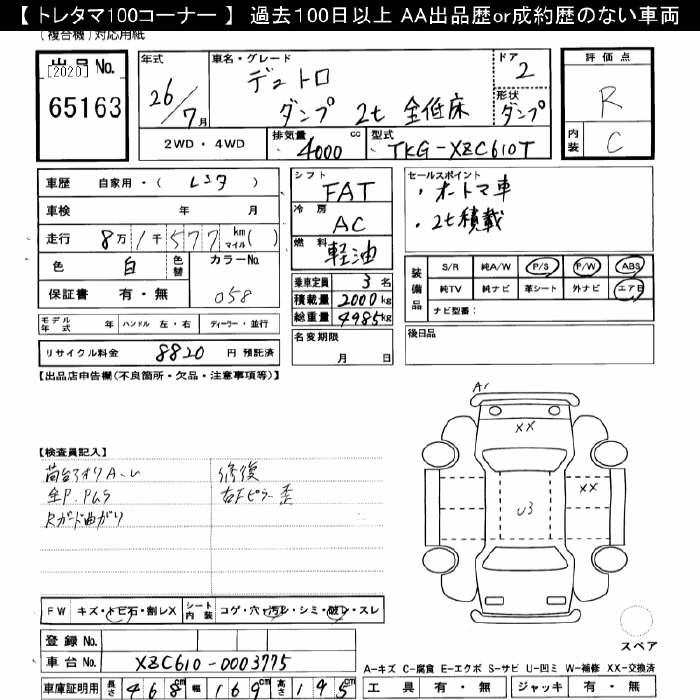 【 トレタマ100コーナー 】 過去100日以上 AA出品歴or成約歴のない車両
(複合機)対応用紙
出品 No.
[2020]
65163
年式
26/7月
車名・グレード
デュトロ
ダンプ 2t 全低床
ドア
2
形状
ダンプ
評価点
R
内装
C
2WD ・ 4WD
排気量
4000 cc
型式
TKG-XZC610T
車歴 自家用・( レンタ )
車検 年 月
走行 8万1千577 km マイル( )
色 白 色替
カラーNo.
058
保証書 有・無
モデル年式 年 ハンドル 左・右 ディーラー・並行
リサイクル料金 8820 円 預託済
シフト
FAT
冷房
AC
燃料
軽油
乗車定員 3 名
積載量 2000 kg
総重量 4985 kg
名変期限
月 日
セールスポイント
・オートマ車
・2t積載
装備品
S/R 純A/W P/S P/W ABS
純TV 純ナビ 革シート 外ナビ エアB
ナビ型番:
後日品
【出品店申告欄(不良箇所・欠品・注意事項等)】
【検査員記入】
荷台アオリA.U
全P.PもS
Rガード曲がり
修復
右Fピラー歪
A1
XX
XX
U3
スペア
FW キズ・トビ石・割レX シート内装 コゲ・穴・汚レ・シミ・破レ・スレ
登録 No.
車台 No. XZC610-0003775
車庫証明用 長さ 468cm 幅 169cm 高さ 195cm
A─キズ C─腐食 E─エクボ S─サビ U─凹ミ W─補修 XX─交換済
工具 有・無 ジャッキ 有・無